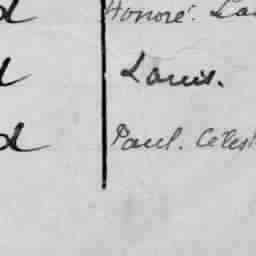 d Honoré. La
d Louis.
d Paul. Célest